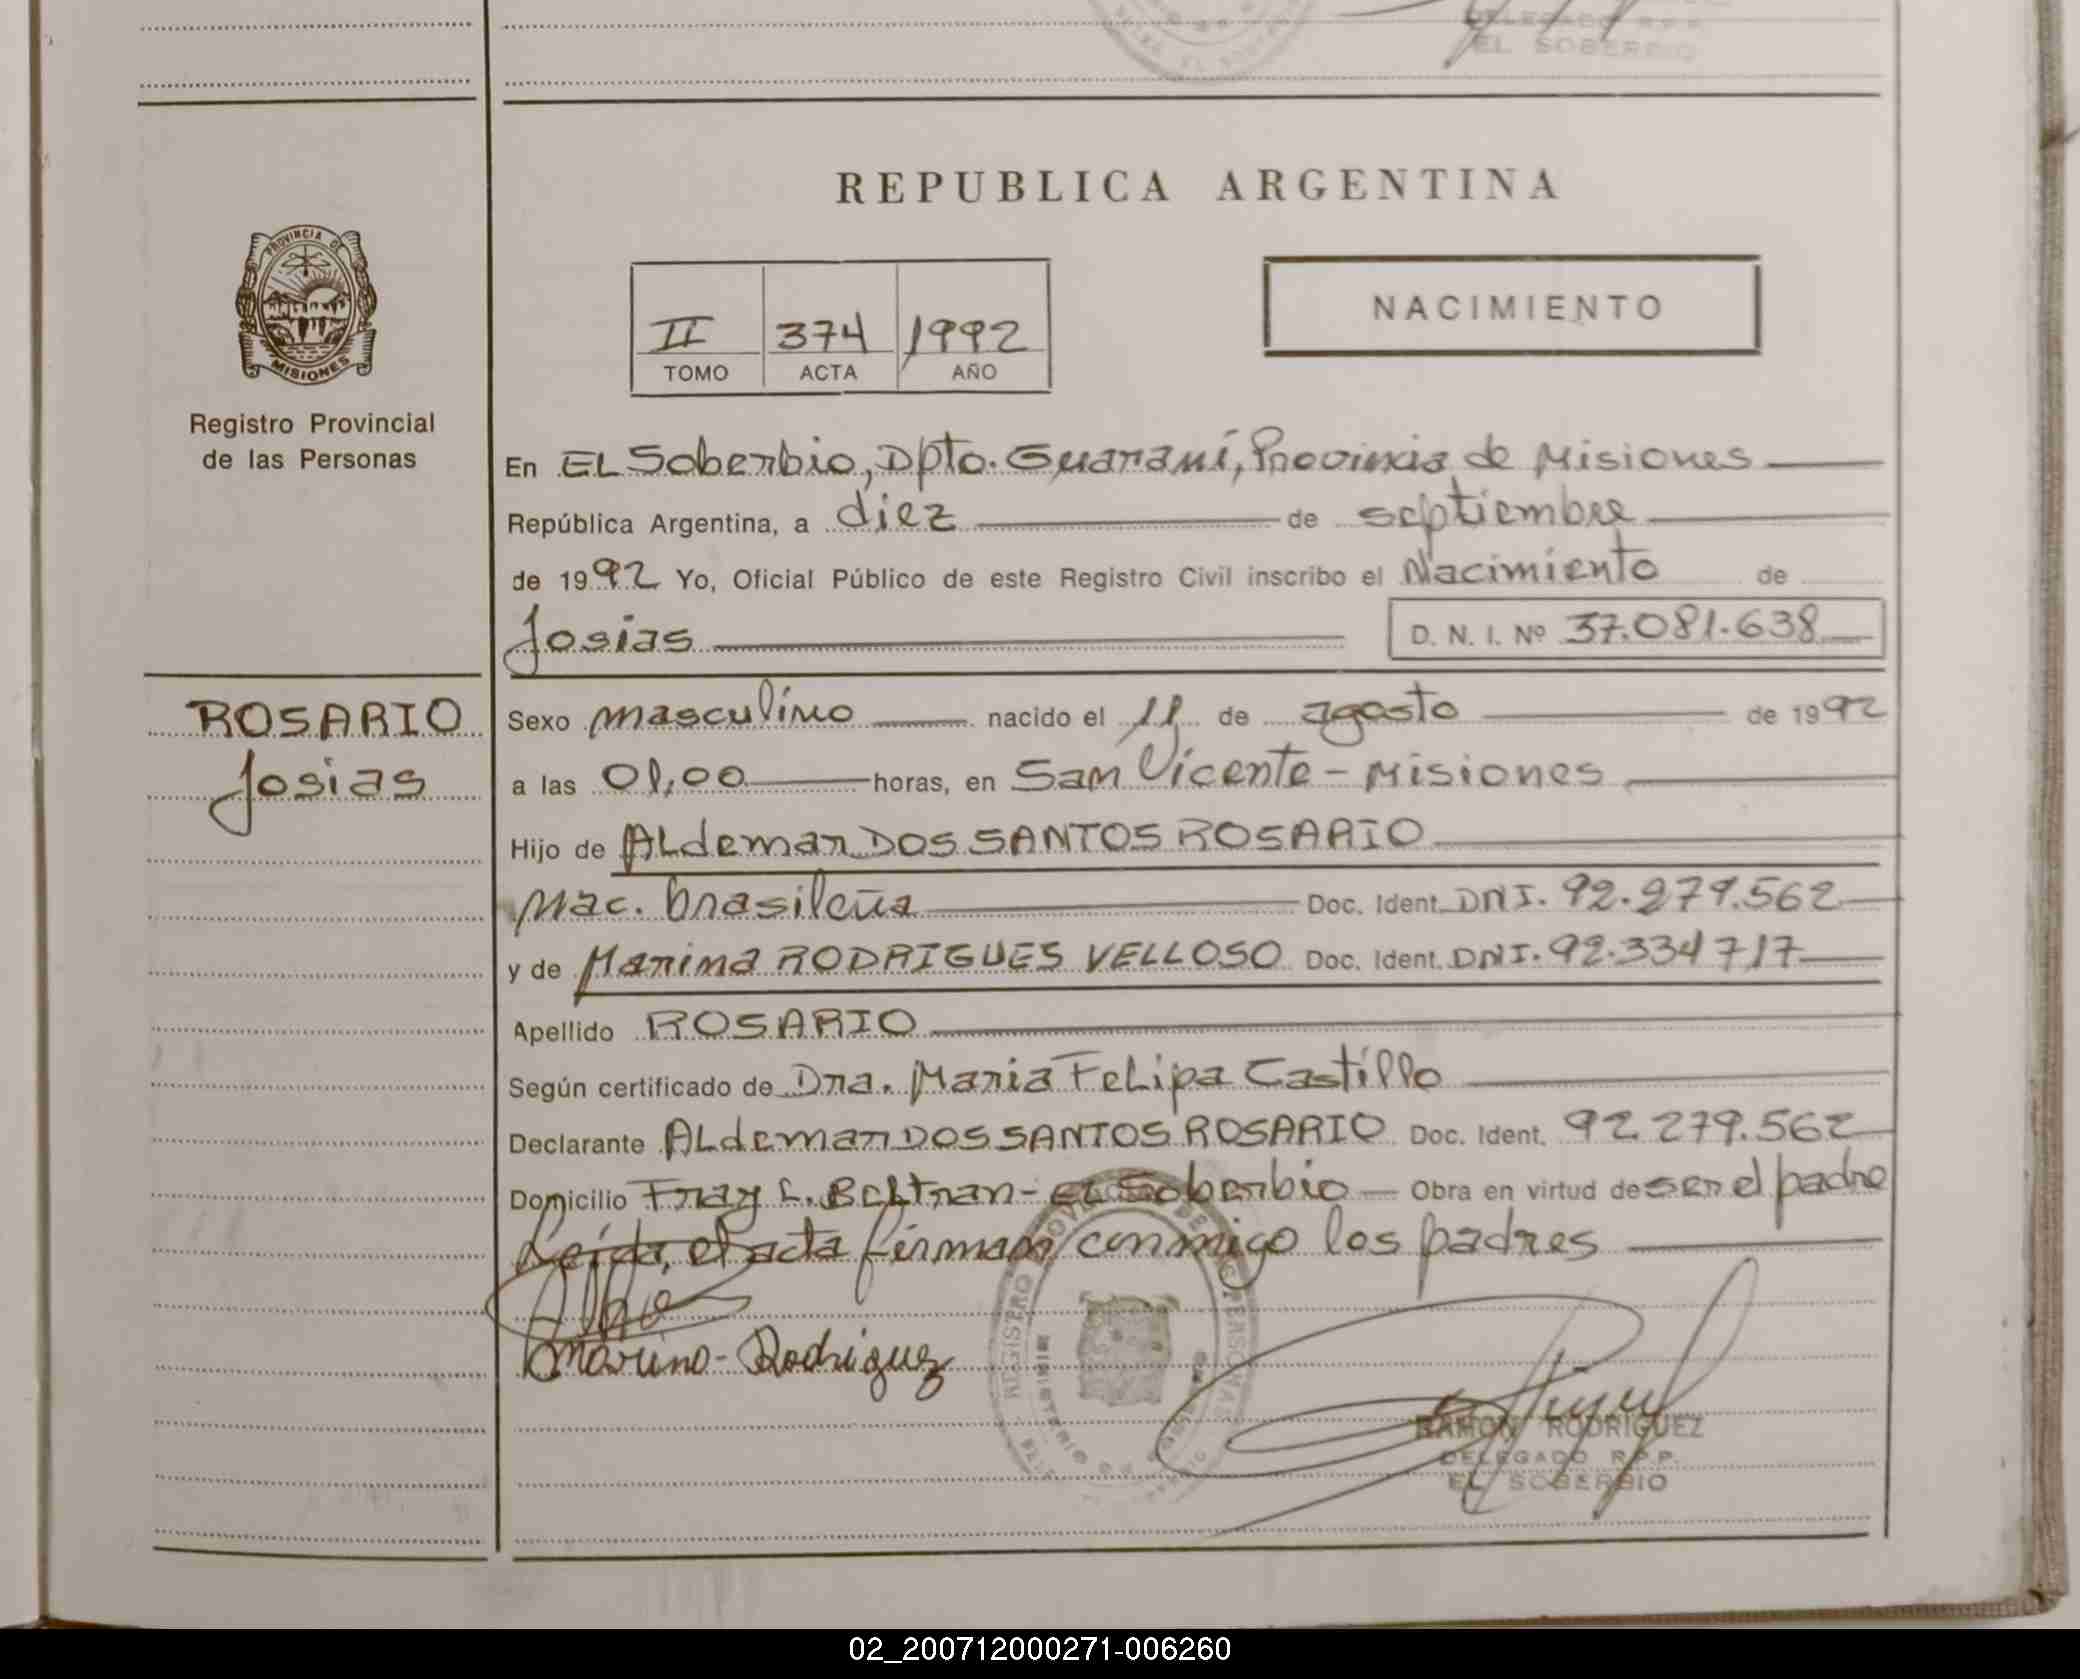 DELEGADO R.P.P.
EL SOBERBIO
REPUBLICA ARGENTINA
PROVINCIA DE
MISIONES
Registro Provincial
de las Personas
II 374 1992
TOMO ACTA AÑO
NACIMIENTO
En EL Soberbio, Dpto. Guaraní, Provincia de Misiones
República Argentina, a diez de septiembre
de 1992 Yo, Oficial Público de este Registro Civil inscribo el Nacimiento de
Josias D. N. I. Nº 37.081.638
ROSARIO
Josias
Sexo masculino nacido el 11 de agosto de 1992
a las 01,00 horas, en San Vicente - Misiones
Hijo de ALdemar DOS SANTOS ROSARIO
Nac. brasileña Doc. Ident. DNI. 92.279.562
y de Marina RODRIGUES VELLOSO Doc. Ident. DNI. 92.334717
Apellido ROSARIO
Según certificado de Dra. Maria FeLipa Castillo
Declarante ALdemar DOS SANTOS ROSARIO Doc. Ident. 92.279.562
Domicilio Fray L. BeLtran - EL Soberbio Obra en virtud de ser el padre
Leída, el acta firman conmigo los padres
Marina - Rodriguez
REGISTRO PROVINCIAL DE LAS PERSONAS
MINISTERIO DE
RAMON RODRIGUEZ
DELEGADO R.P.P.
EL SOBERBIO
02_200712000271-006260